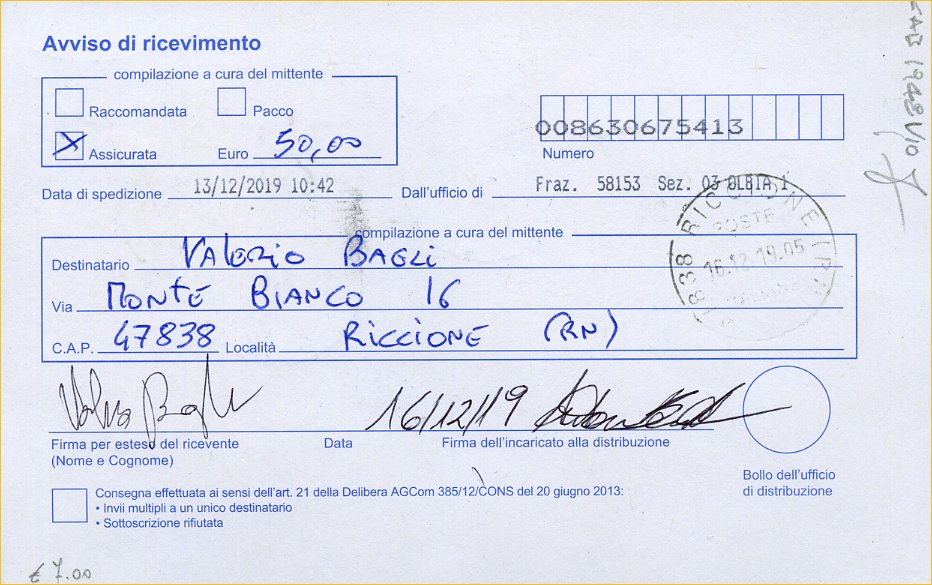 Avviso di ricevimento
compilazione a cura del mittente
Raccomandata Pacco
Assicurata Euro 50,00
008630675413
Numero
Data di spedizione 13/12/2019 10:42 Dall'ufficio di Fraz. 58153 Sez. 03 OLBIA 1
compilazione a cura del mittente
Destinatario VALERIO BAGLI
Via MONTE BIANCO 16
C.A.P. 47838 Località RICCIONE (RN)
RICCIONE
POSTE
16.12.19.05
16/12/19
Firma per esteso del ricevente Data Firma dell'incaricato alla distribuzione
(Nome e Cognome)
Bollo dell'ufficio
di distribuzione
Consegna effettuata ai sensi dell'art. 21 della Delibera AGCom 385/12/CONS del 20 giugno 2013:
• Invii multipli a un unico destinatario
• Sottoscrizione rifiutata
€ 7.00